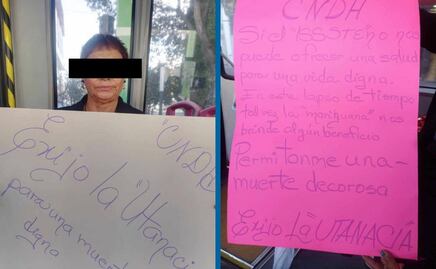 "CNDH
Exijo la "Utanaci
para una muert
digna
CNDH
Si el ISSSTE no nos
puede ofrecer una salud
para una vida digna.
En este lapso de tiempo
tal vez la "mariguana" nos
brinde algún beneficio
Permitanme una-
muerte decorosa
Exijo la "UTANACIA